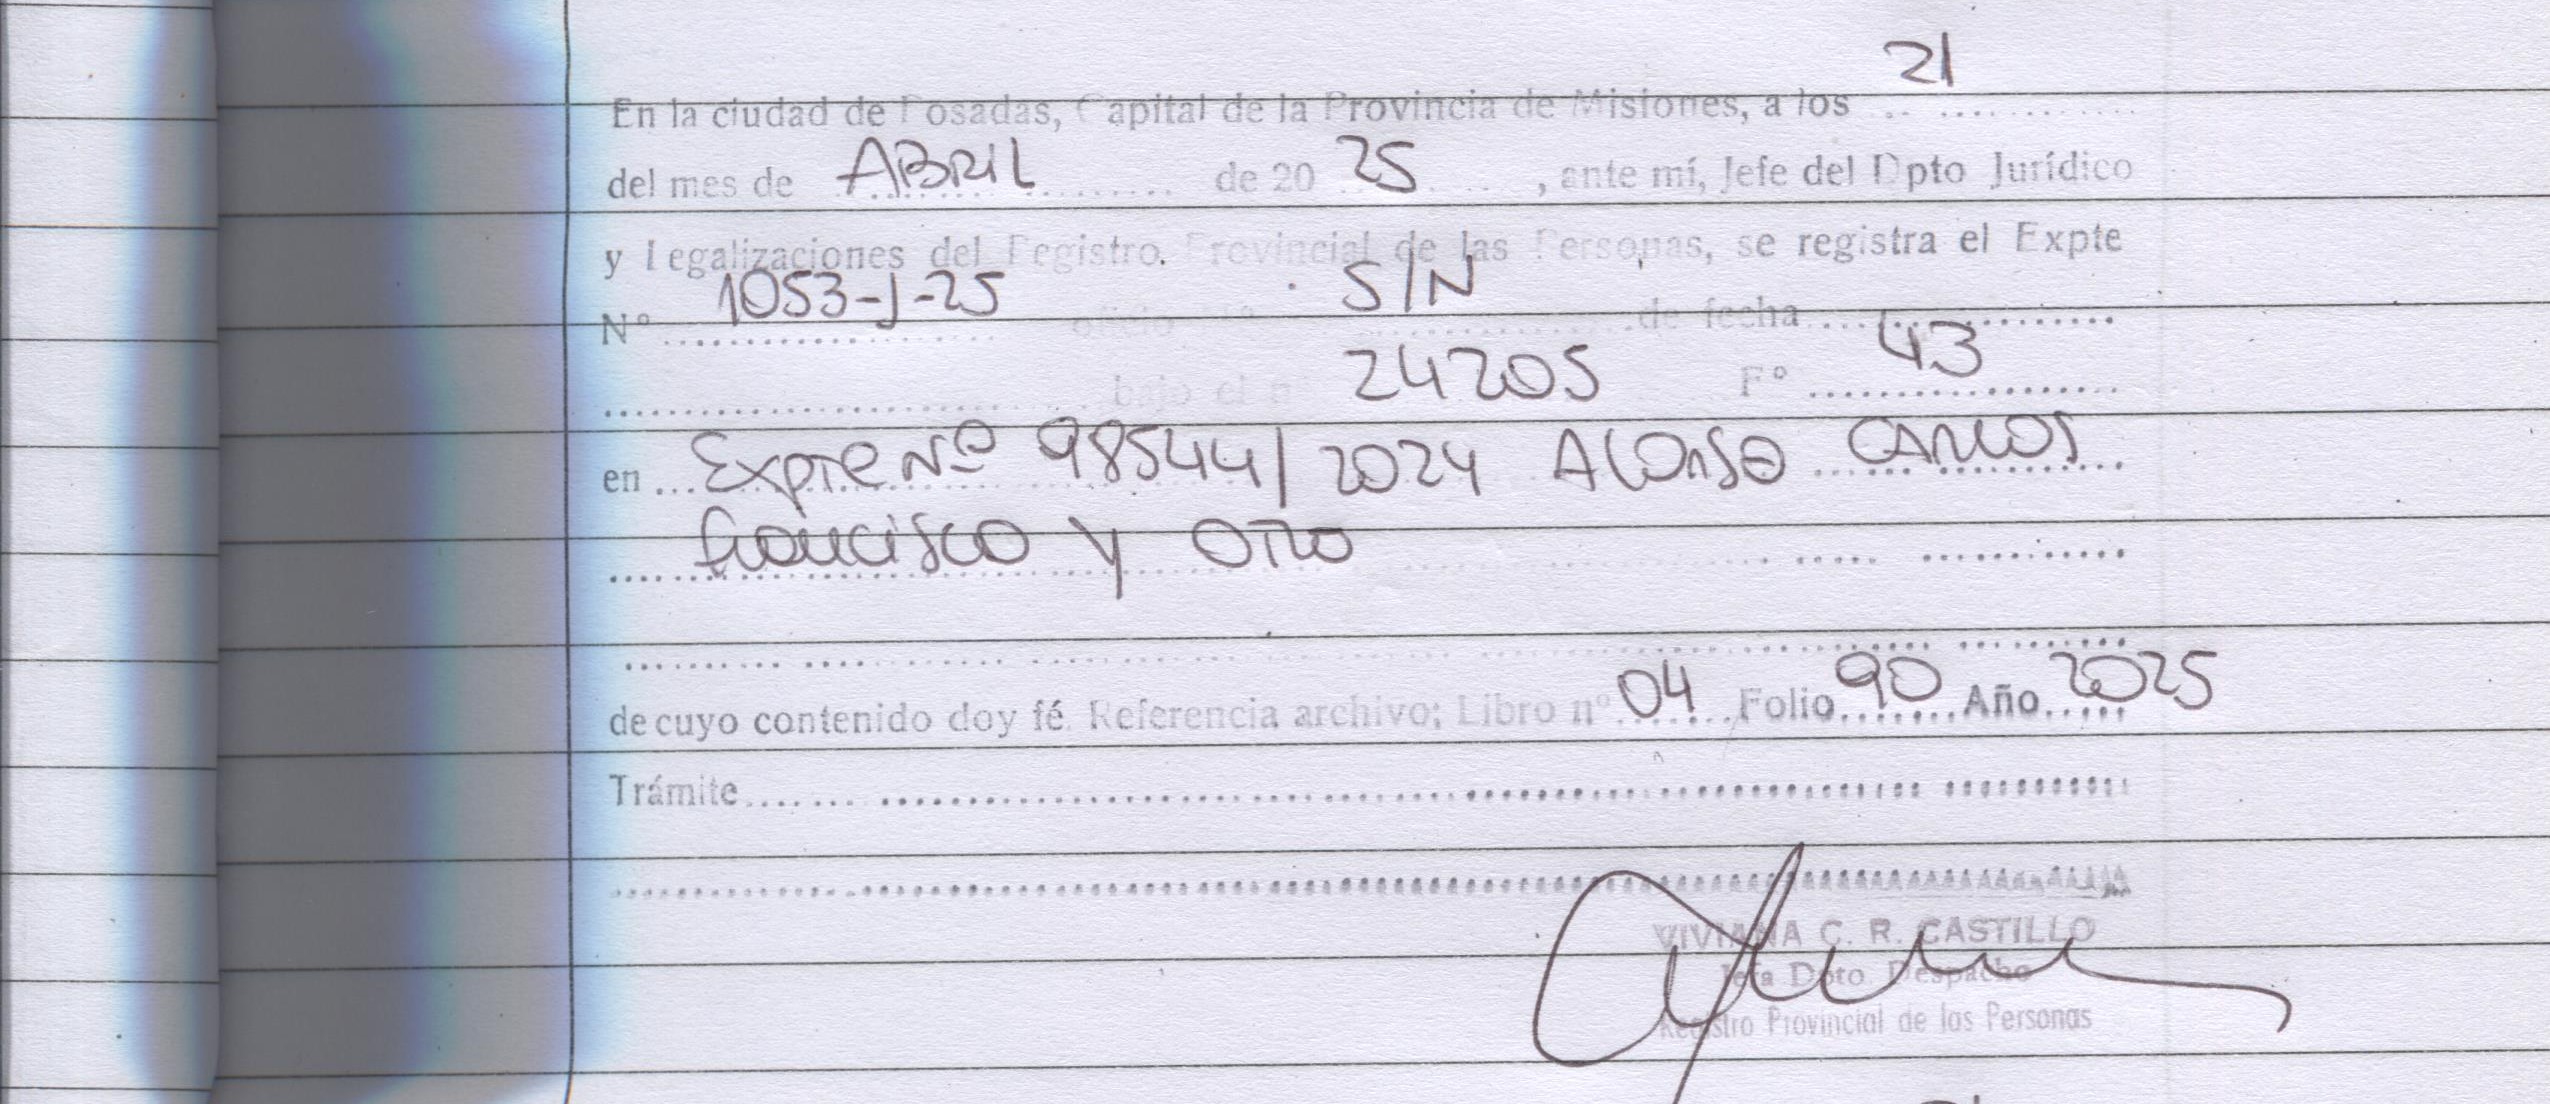 21
En la ciudad de Posadas, Capital de la Provincia de Misiones, a los ..............
del mes de ABRIL de 20 25 , ante mí, Jefe del Dpto Jurídico
y Legalizaciones del Registro Provincial de las Personas, se registra el Expte
Nº 1053-J-25 oficio nº S/N de fecha ..............
.............. bajo el nº 24205 Fº 43
en Expte Nº 98544/2024 Alonso Carlos
francisco y otro
de cuyo contenido doy fé. Referencia archivo; Libro nº 04 Folio 90 Año 2025
Trámite ..............
VIVIANA C. R. CASTILLO
Jefa Dpto. Despacho
Registro Provincial de las Personas